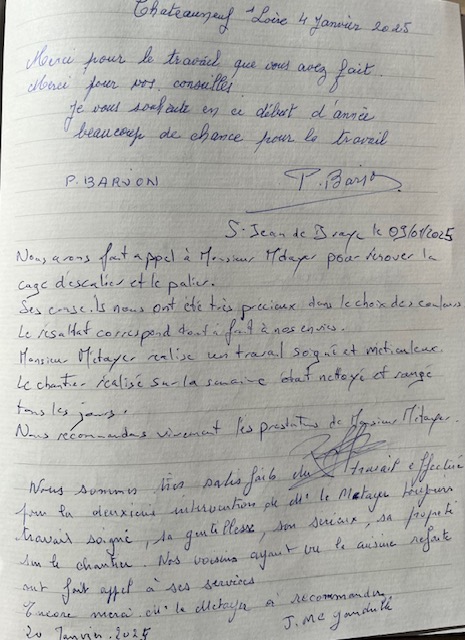 Chateauneuf s/ Loire 4 Janvier 2025
Merci pour le travail que vous avez fait..
Merci pour vos conseils
Je vous souhaite en ce début d'année
beaucoup de chance pour le travail
P. BARJON P. Barjon
St Jean de Braye le 09/01/2025
Nous avons fait appel à Monsieur Métayer pour rénover la
cage d'escalier et le palier.
Ses conseils nous ont été très précieux dans le choix des couleurs
Le résultat correspond tout à fait à nos envies.
Monsieur Métayer réalise un travail soigné et méticuleux.
Le chantier réalisé sur la semaine était nettoyé et rangé
tous les jours.
Nous recommandons vivement les prestations de Monsieur Métayer.
Nous sommes très satisfaits du travail effectué
pour la deuxième intervention de Mr le Metayer toujours
travail soigné, sa gentillesse, son sérieux, sa propreté
sur le chantier. Nos voisins ayant vu la cuisine refaite
ont fait appel à ses services
Encore merci Mr le Metayer à recommander
20 Janvier 2025 J. Mc